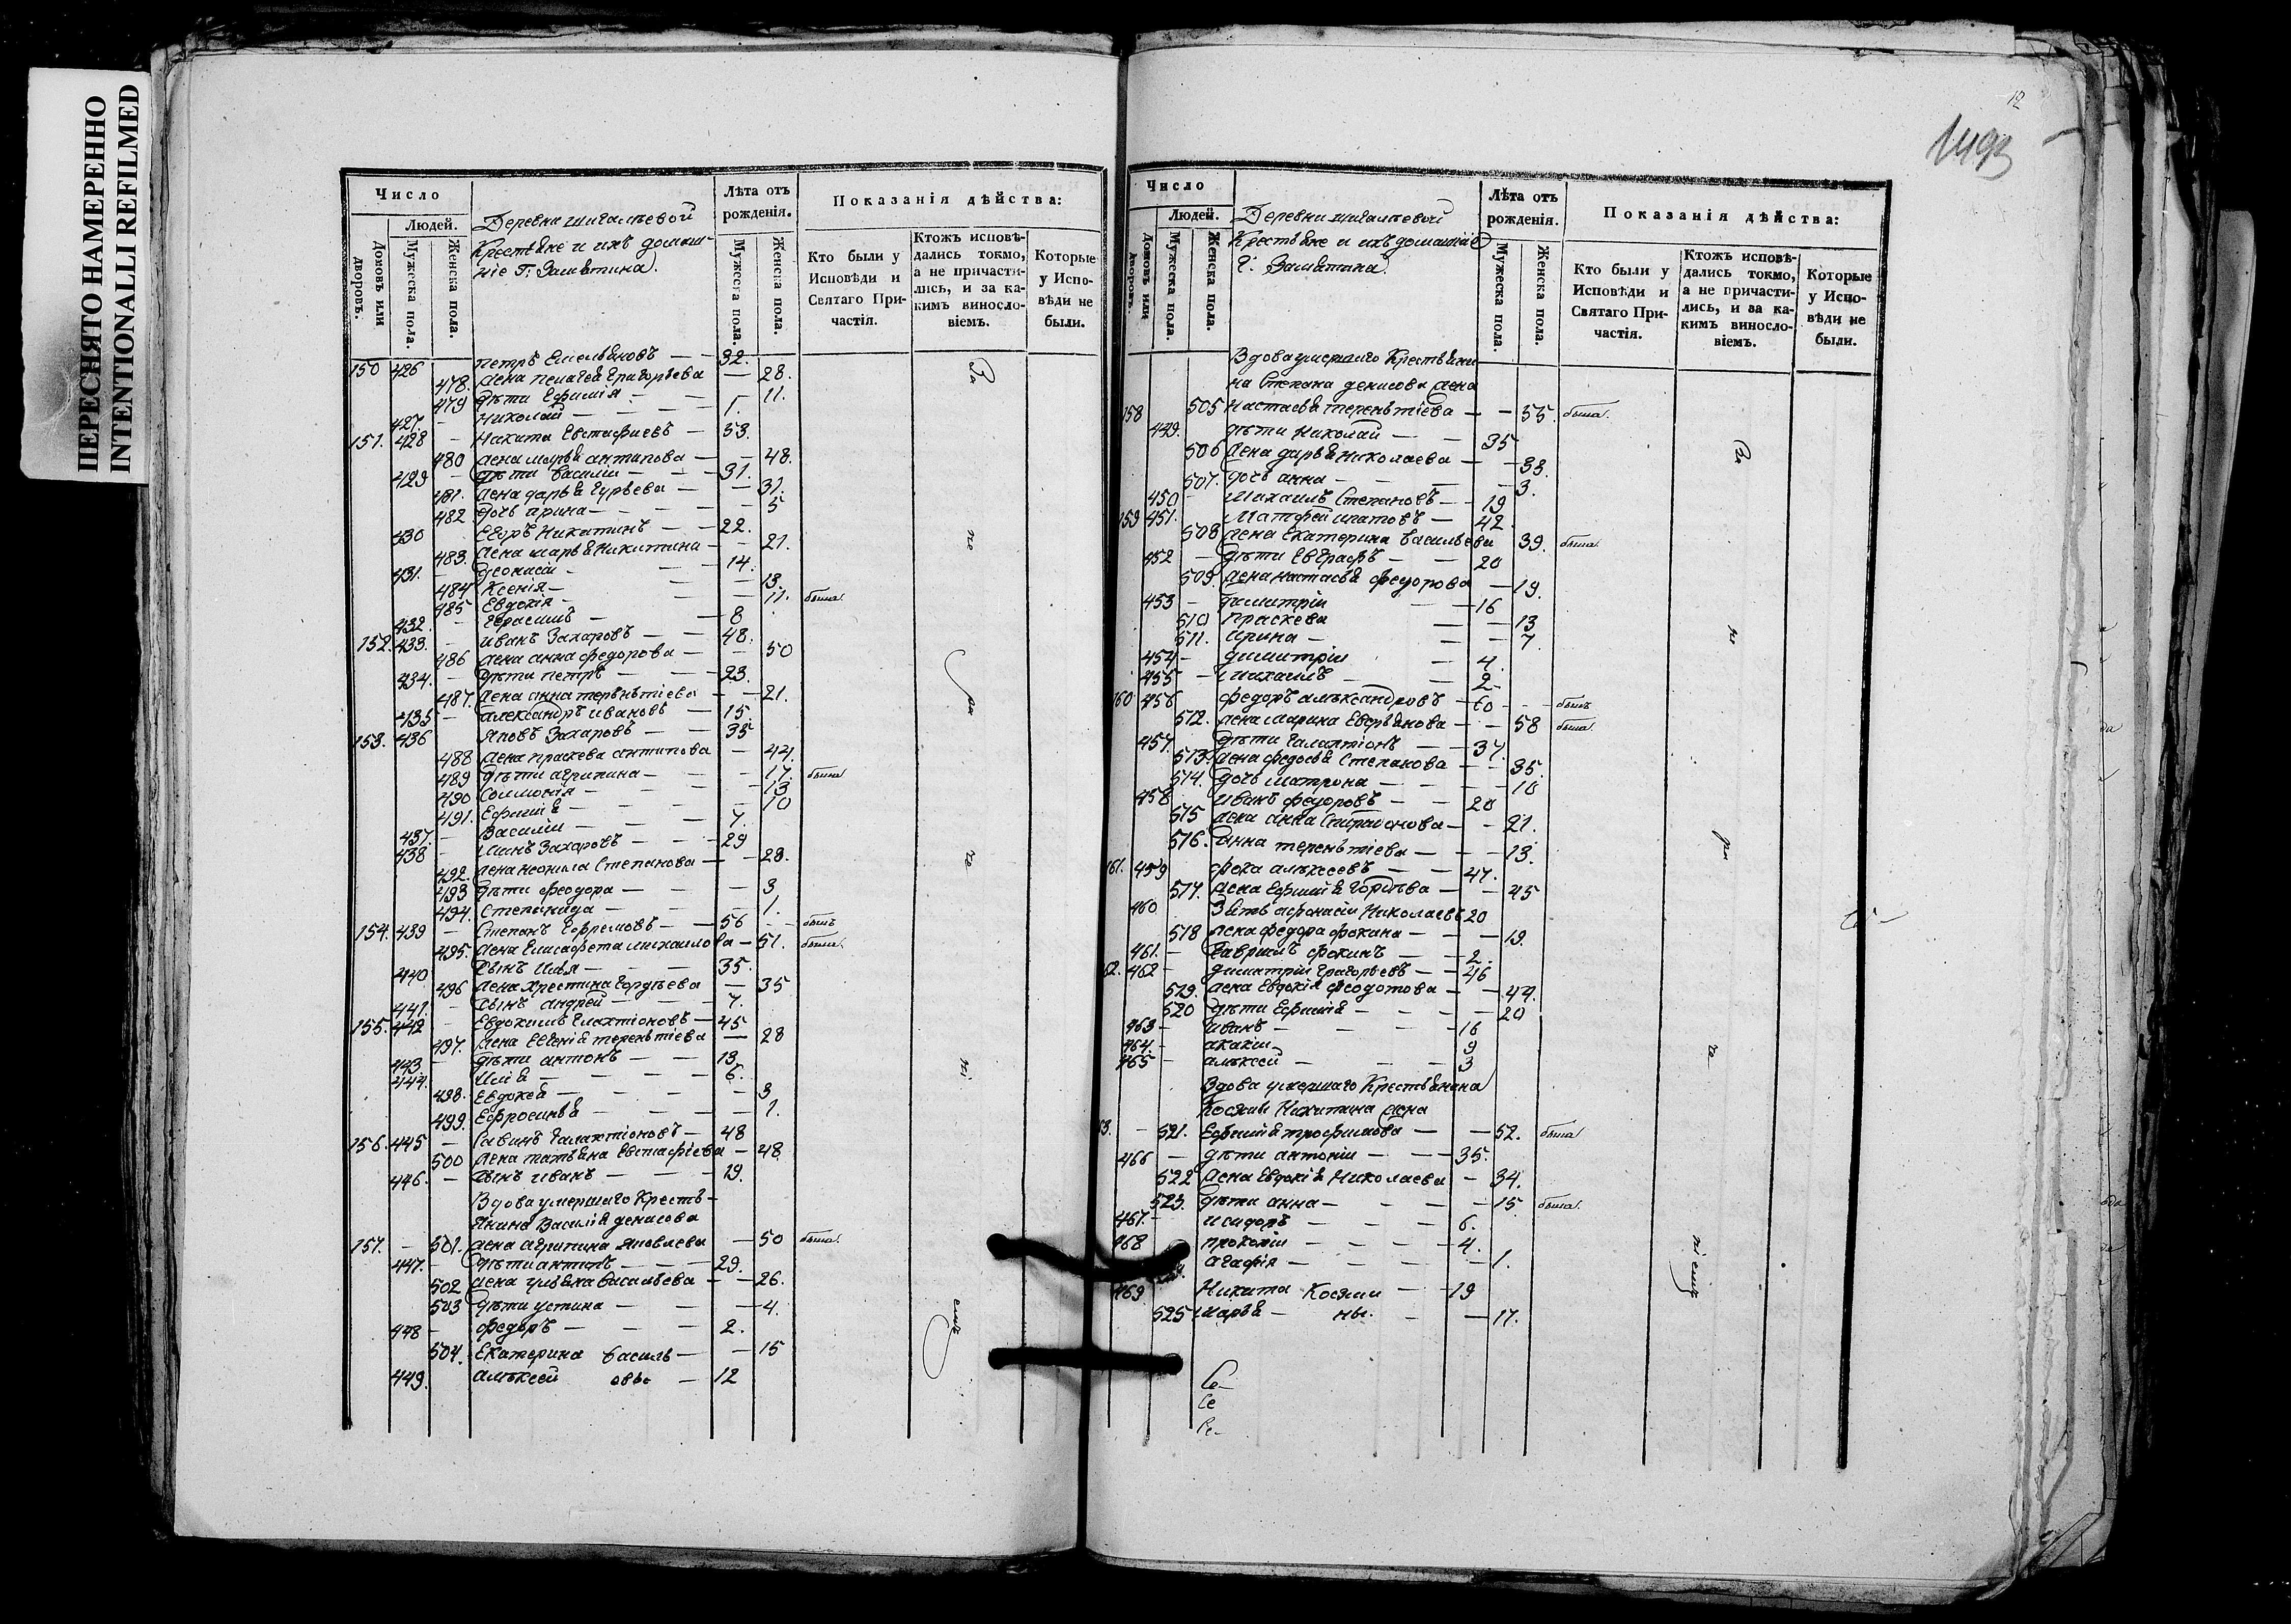 ПЕРЕСНЯТО НАМЕРЕННО
INTENTIONALLI REFILMED
Число
Людей.
Домовъ или дворовъ.
Мужеска пола.
Женска пола.
Деревни шигалѣевой
Крестьяне и ихъ домаш-
ніе Г: Замятина.
Лѣта отъ рожденія.
Мужеска пола.
Женска пола.
Показанія дѣйства:
Кто были у Исповѣди и Святаго При-частія.
Ктожъ исповѣ-дались токмо, а не причасти-лись, и за ка-кимъ винословіемъ.
Которые у Испо-вѣди не были.
150 426 петръ Емельяновъ — 32.
478. жена пелагея Григорьева — 28.
479 дѣти Ефимія — 11.
427. Николай — 1.
151. 428 Никита Евстафиевъ — 53.
480 жена марья антипова — 48.
429 дѣти василіи — 31.
481. жена дарья Гурьева — 31.
482 дочь арина — 5
430 Егоръ Никитинъ — 22.
483. жена марья Никитина — 21.
431. Деонисіи — 14.
484 Ксенія — 13.
485 Евдокія — 11. была.
432. Герасимъ — 8
152. 433. иванъ Захаровъ — 48.
486 жена анна федорова — 50
434. дѣти петръ — 23.
487. жена анна терентіева — 21.
435 александръ ивановъ — 15.
153. 436 Яковъ Захаровъ — 35
488 жена праскева антипова — 44.
489 дѣти агрипина — 17. была
490 Соломонія — 13
491. Ефимія — 10
437. Василіи — 7.
438 Минъ Захаровъ — 29
492. жена неонила Степанова — 28.
493 дѣти феодора — 3
494. Степанида — 1.
154. 439 Степанъ Ефремовъ — 56 былъ
495. жена Елисафета михаилова — 51. была.
440 сынъ Илья — 35.
496 жена Хрестина Гордѣева — 35
441. сынъ андрей — 7.
155. 442 Евдокимъ Глахтіоновъ — 45
497. жена Евгенія терентіева — 28
443. дѣти антонъ — 13
444. Илія — 6.
498. Евдокея — 3
499. Ефросинья — 1.
156. 445 Савинъ Галахтіоновъ — 48
500 жена татьяна Евстафіева — 48
446. сынъ иванъ — 19.
Вдова умершаго Кресть-
янина Василія денисова
157. 501. жена агрипина Яковлева — 50 была.
447. дѣти антипъ — 29.
502 жена ульяна васильева — 26.
503 дѣти устина — 4.
448 федоръ — 2.
504. Екатерина василь — 15
449. алѣксей овы — 12
За не ра че ні емъ
12
Число
Людей.
Домовъ или дворовъ.
Мужеска пола.
Женска пола.
Деревни шигалѣевой
Крестьяне и ихъ домашніе
Г: Замятина.
Лѣта отъ рожденія.
Мужеска пола.
Женска пола.
Показанія дѣйства:
Кто были у Исповѣди и Святаго При-частія.
Ктожъ исповѣ-дались токмо, а не причасти-лись, и за ка-кимъ винословіемъ.
Которые у Испо-вѣди не были.
Вдова умершаго Крестьяни
на Степана денисова жена
158 505 Настасья терентіева — 55. была.
449. дѣти Николай — 35
506 жена дарья Николаева — 33.
507. дочь анна — 3.
450 Михаилъ Степановъ — 19
159 451. Матфей ипатовъ — 42.
508 жена Екатерина васильева 39. была
452 дѣти Евграфъ — 20
509. жена настасья федорова — 19.
453 димитріи — 16
510 Праскева — 13
511. Арина — 7.
454 димитріи — 4.
455 михаилъ — 2
160 456 федоръ алѣксандровъ — 60 былъ
512. жена марина Емельянова — 58 была.
457. дѣти Галахтіонъ — 37.
513. жена федосья Степанова — 35.
514. дочь матрона — 10
458 иванъ федоровъ — 20
515 жена анна Спиридонова — 21.
516. анна терентіева — 13.
161. 459 фока алѣксеевъ — 47.
517. жена Ефимія Гордѣева — 45
460 Зять афонасіи Николаевъ 20
518 жена федора фокина — 19.
461. Гавриилъ фокинъ — 2.
162. 462 димитріи Григорьевъ — 46
519. жена Евдокія Федотова — 44.
520 дѣти Ефимія — 20
463 иванъ — 16
464. акакіи — 9
465 алѣксей — 3
Вдова умершаго Крестьянина
Космы Никитина жена
163. 521. Ефимія трофимова — 52. была
466 дѣти антоніи — 35.
522 жена Евдокія Николаева — 34.
523. дѣти анна — 15 была.
467. исидоръ — 6.
468 прокопіи — 4.
агафія — 1.
469 Никита Косми — 19
525 марья — ны. — 17.
Се-
Се
Се-
За не ра че ніемъ